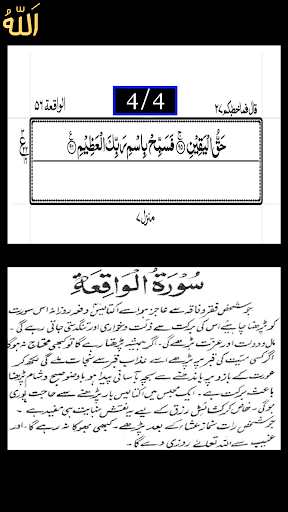 اَللّٰهُ
قال فماخطبكم ۲۷ 4/4 الواقعة ۵۶
حَقُّ الْيَقِيْنِ ۝ فَسَبِّحْ بِاسْمِ رَبِّكَ الْعَظِيْمِ ۝
منزل ۷
سُورَةُ الْوَاقِعَةِ
جو شخص فقر و فاقہ سے عاجز ہو اسے اکتالیس دفعہ روزانہ اس سورت
کو پڑھنا چاہیے اس کی برکت سے ذلت و خواری اور تنگدستی جاتی رہے گی۔
مال و دولت اور عزت بڑھے گی۔ اگر ہمیشہ پڑھتا رہے گا تو کبھی محتاج نہ ہوگا
اگر کسی میت کی قبر پر پڑھے گا اسے عذاب قبر سے نجات ملے گی لکھ کر
عورت کے بازو پر باندھنے سے بچہ آسانی پیدا ہو باوضو صبح و شام پڑھنا
باعث برکت ہے۔ ایک مجلس میں اکتالیس بار پڑھنے سے حاجت پوری
ہوگی۔ خاص کر کشائش رزق کے لیے نہایت ہی مفید ہے۔
جو شخص رات نماز عشاء کے بعد پڑھے۔ کبھی بھوکا نہ رہے گا۔ اور
غیب سے اللہ تعالےٰ روزی دے گا۔